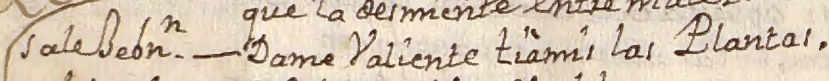 que la desmiente entre
sale Sebn.n — Dame Valiente tiàmis las Plantas.